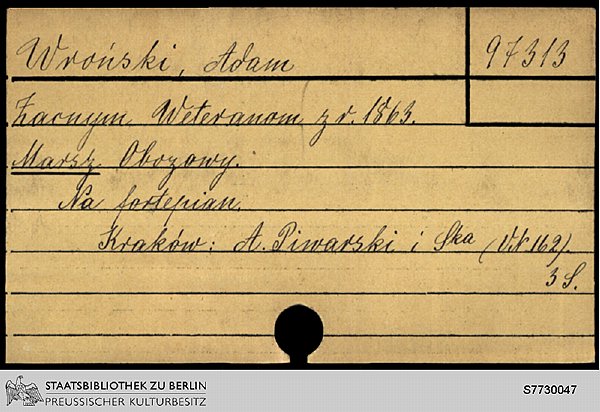 Wroński, Adam
97313
Zacnym Weteranom z r. 1863.
Marsz Obozowy.
Na fortepian.
Kraków: A. Piwarski i Ska (V.N 162).
3 S.
STAATSBIBLIOTHEK ZU BERLIN
PREUSSISCHER KULTURBESITZ
S7730047